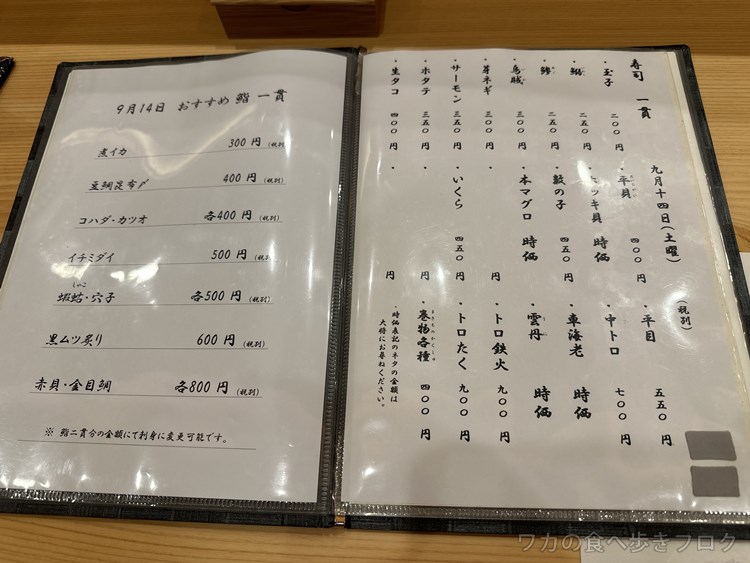 9月14日 おすすめ 鮨 一貫
煮イカ 300 円 (税別)
真鯛昆布〆 400 円 (税別)
コハダ・カツオ 各400 円 (税別)
イチミダイ 500 円 (税別)
しゃこ
蝦蛄・穴子 各500 円 (税別)
黒ムツ炙り 600 円 (税別)
赤貝・金目鯛 各800 円 (税別)
※ 鮨二貫分の金額にて刺身に変更可能です。
寿司 一貫 九月十四日(土曜) (税別)
・玉子 二〇〇 円
・鰯 二五〇 円
・鯵 二五〇 円
・烏賊 三五〇 円
・芽ネギ 三五〇 円
・サーモン 三五〇 円
・ホタテ 三五〇 円
・生タコ 四〇〇 円
・平貝 四〇〇 円
・ホッキ貝 時価
・数の子 四五〇 円
・本マグロ 時価
・ 円
・いくら 四五〇 円
・ 円
・ 円
・平目 五五〇 円
・中トロ 七〇〇 円
・車海老 時価
・雲丹 時価
・トロ鉄火 九〇〇 円
・トロたく 九〇〇 円
・巻物各種 四〇〇 円
・時価表記のネタの金額は
大将にお尋ねください。
ワカの食べ歩きブログ